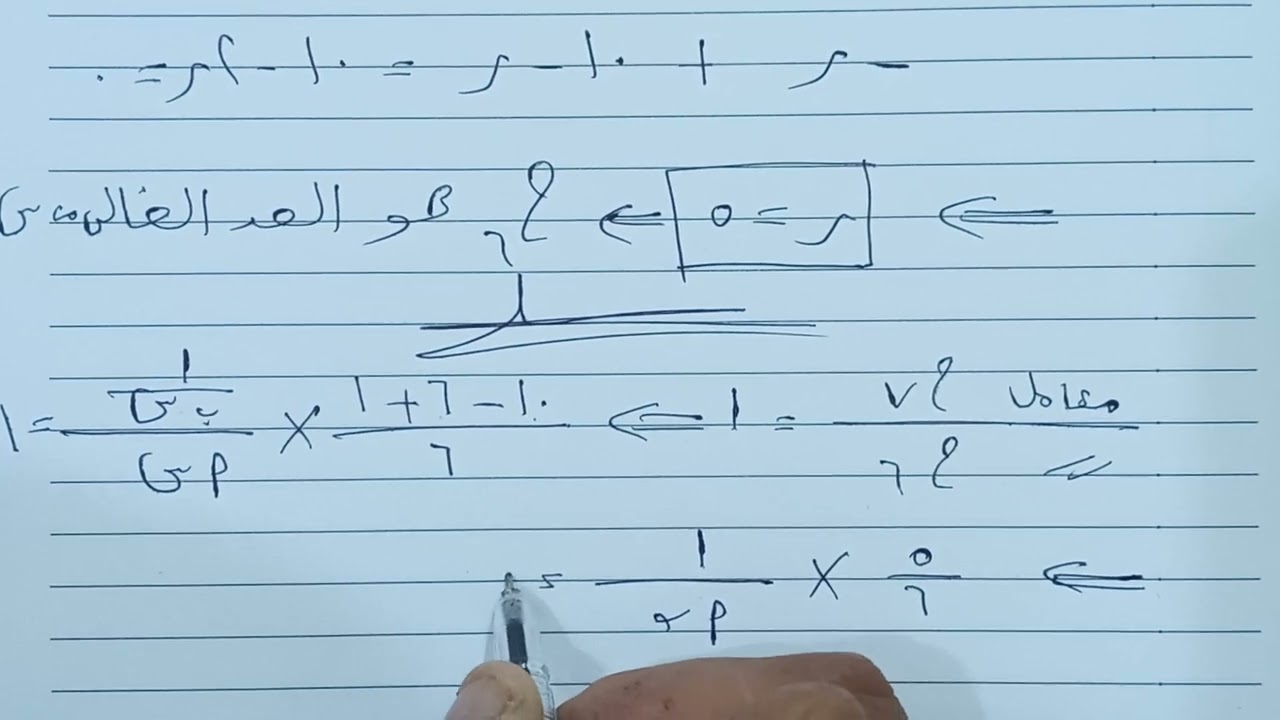 − ر + ١٠ − ر = ١٠ − ٢ر = ٠
⇐ ر = ٥ ⇐ ح٦ هو الحد الخالي من س
معامل ح٧ / معامل ح٦ = ١ ⇐ (١٠ − ٦ + ١) / ٦ × (١ / ب س) / (أ س) = ١
⇐ ٥ / ٦ × ١ / أ ب =